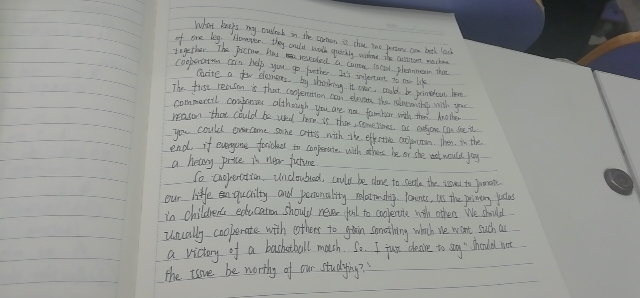 What keeps my outlook in the cartoon is that two persons can both lack
of one leg. However, they could walk quickly without the assistant machine
together. The picture has revealed a current social phenomenon that
cooperation can help you go further. It's important to our life
Quite a few elements, by thinking it over, could be pinpointed here
The first reason is that cooperation can elevate the relationship with your
commercial companies although you are not familiar with them. Another
reason that could be used here is that, sometimes, as everyone can see it
you could overcome some crisis with the effective cooperation. Then, in the
end, if everyone to cooperate with others he or she would pay
a heavy price in near future
So cooperation, undoubted, could be done to settle the issues to promote
our life quality and personality relationship. Parents, as the primary
in children's education should never fail to cooperate with others. We should
usually cooperate with others to gain something which we want such as
a victory of a basketball match. So, I just desire to say "should not
the issue be worthy of our studying?"